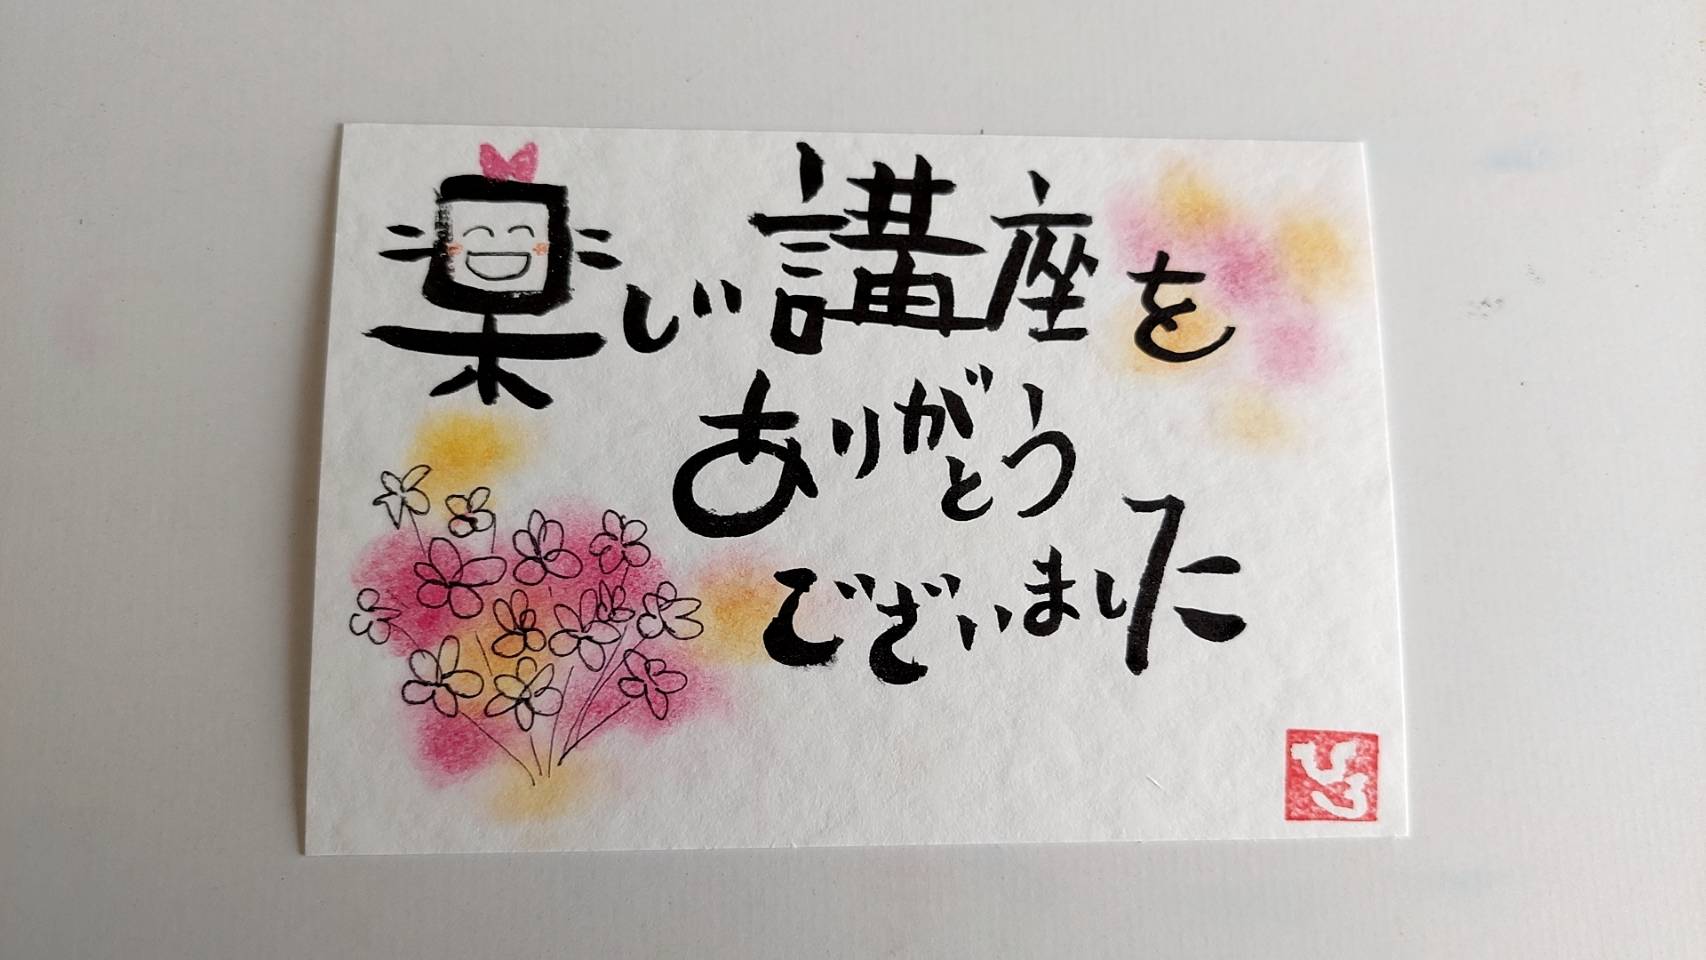 楽しい講座を
ありがとう
ございました
ひろ